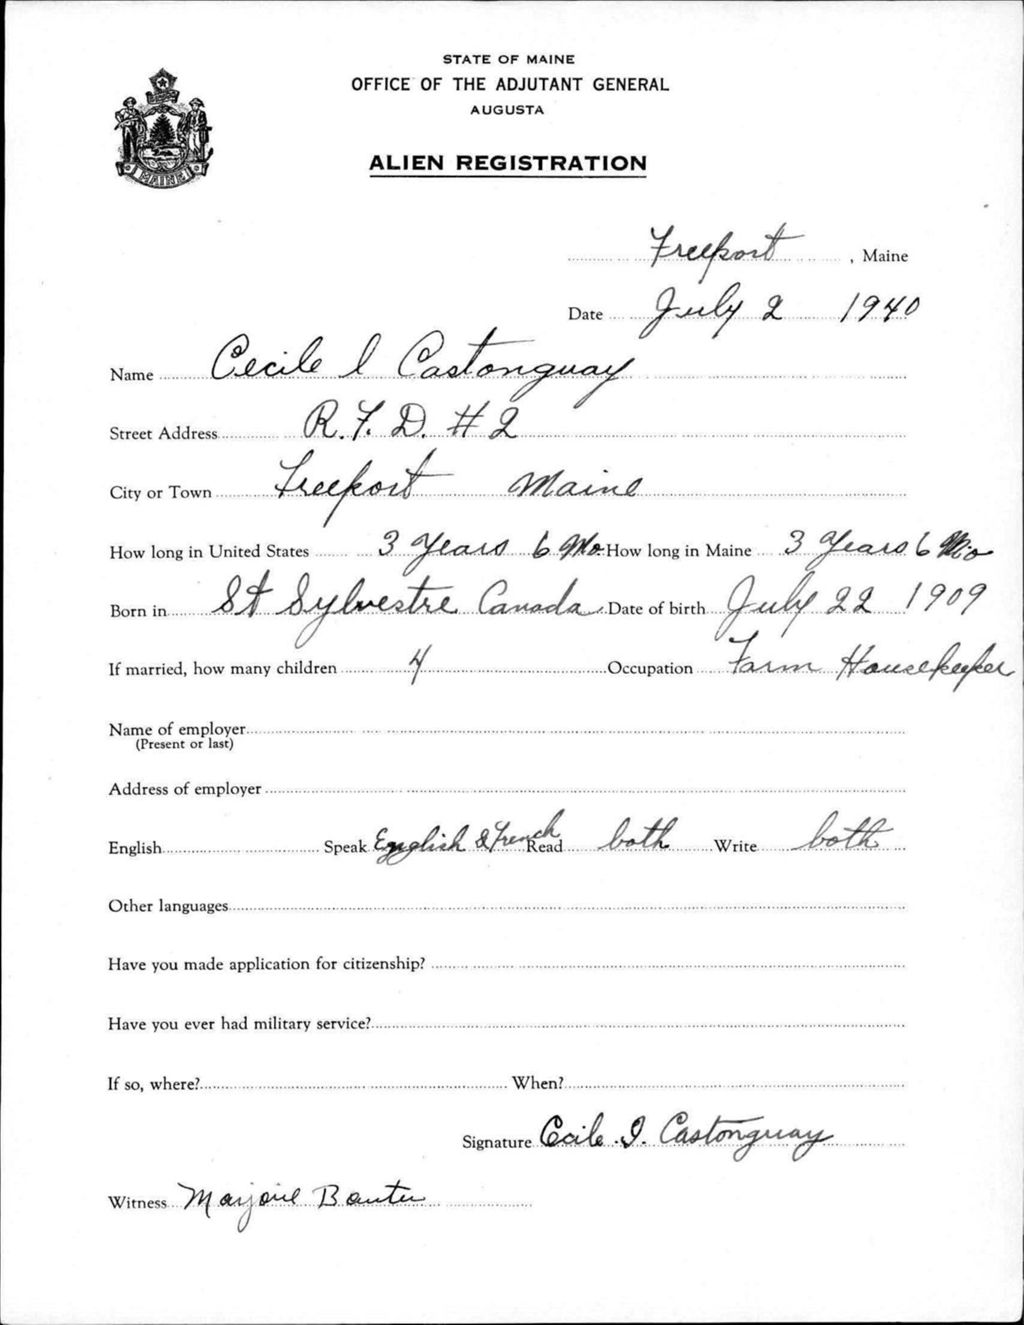 STATE OF MAINE
OFFICE OF THE ADJUTANT GENERAL
AUGUSTA
ALIEN REGISTRATION
MAINE
Freeport, Maine
Date July 2 1940
Name Cecile I Castonguay
Street Address R.F.D. #2
City or Town Freeport Maine
How long in United States 3 Years 6 Mo. How long in Maine 3 Years 6 Mo
Born in St Sylvestre Canada Date of birth July 22 1909
If married, how many children 4 Occupation Farm Housekeeper
Name of employer
(Present or last)
Address of employer
English Speak English & French Read both Write both
Other languages
Have you made application for citizenship?
Have you ever had military service?
If so, where? When?
Signature Cecile I. Castonguay
Witness Marjorie